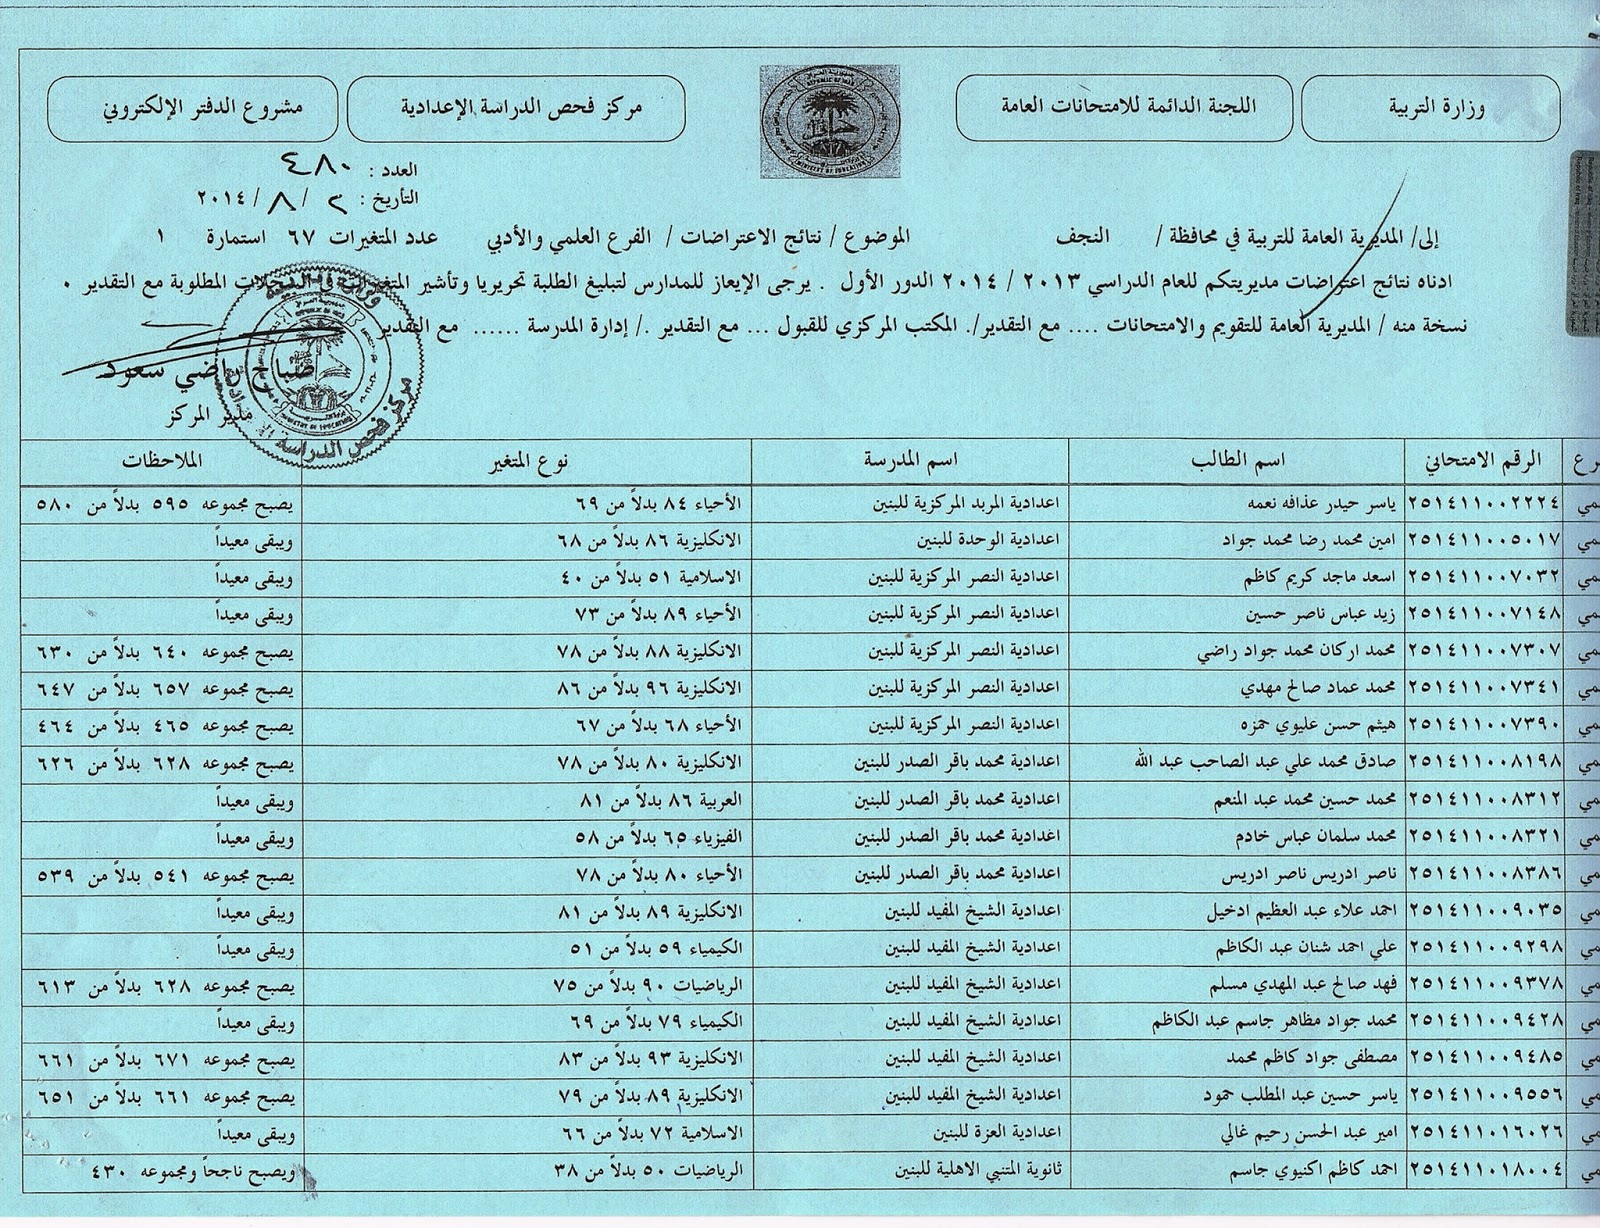 وزارة التربية
اللجنة الدائمة للامتحانات العامة
مركز فحص الدراسة الإعدادية
مشروع الدفتر الإلكتروني
العدد : ٤٨٠
التأريخ : ٢ / ٨ / ٢٠١٤
إلى/ المديرية العامة للتربية في محافظة / النجف الموضوع / نتائج الاعتراضات / الفرع العلمي والأدبي عدد المتغيرات ٦٧ استمارة ١
ادناه نتائج اعتراضات مديريتكم للعام الدراسي ٢٠١٣ / ٢٠١٤ الدور الأول . يرجى الإيعاز للمدارس لتبليغ الطلبة تحريريا وتأشير المتغيرات في السجلات المطلوبة مع التقدير .
نسخة منه / المديرية العامة للتقويم والامتحانات .... مع التقدير/. المكتب المركزي للقبول ... مع التقدير ./ إدارة المدرسة ...... مع التقدير
صباح راضي سعود
مدير المركز
رع الرقم الامتحاني اسم الطالب اسم المدرسة نوع المتغير الملاحظات
مي ٢٥١٤١١٠٠٢٢٢٤ ياسر حيدر عذافه نعمه اعدادية المربد المركزية للبنين الأحياء ٨٤ بدلاً من ٦٩ يصبح مجموعه ٥٩٥ بدلاً من ٥٨٠
مي ٢٥١٤١١٠٠٥٠١٧ امين محمد رضا محمد جواد اعدادية الوحدة للبنين الانكليزية ٨٦ بدلاً من ٦٨ ويبقى معيداً
مي ٢٥١٤١١٠٠٧٠٣٢ اسعد ماجد كريم كاظم اعدادية النصر المركزية للبنين الاسلامية ٥١ بدلاً من ٤٠ ويبقى معيداً
مي ٢٥١٤١١٠٠٧١٤٨ زيد عباس ناصر حسين اعدادية النصر المركزية للبنين الأحياء ٨٩ بدلاً من ٧٣ ويبقى معيداً
مي ٢٥١٤١١٠٠٧٣٠٧ محمد اركان محمد جواد راضي اعدادية النصر المركزية للبنين الانكليزية ٨٨ بدلاً من ٧٨ يصبح مجموعه ٦٤٠ بدلاً من ٦٣٠
مي ٢٥١٤١١٠٠٧٣٤١ محمد عماد صالح مهدي اعدادية النصر المركزية للبنين الانكليزية ٩٦ بدلاً من ٨٦ يصبح مجموعه ٦٥٧ بدلاً من ٦٤٧
مي ٢٥١٤١١٠٠٧٣٩٠ هيثم حسن عليوي حمزه اعدادية النصر المركزية للبنين الأحياء ٦٨ بدلاً من ٦٧ يصبح مجموعه ٤٦٥ بدلاً من ٤٦٤
مي ٢٥١٤١١٠٠٨١٩٨ صادق محمد علي عبد الصاحب عبد الله اعدادية محمد باقر الصدر للبنين الانكليزية ٨٠ بدلاً من ٧٨ يصبح مجموعه ٦٢٨ بدلاً من ٦٢٦
مي ٢٥١٤١١٠٠٨٣١٢ محمد حسين محمد عبد المنعم اعدادية محمد باقر الصدر للبنين العربية ٨٦ بدلاً من ٨١ ويبقى معيداً
مي ٢٥١٤١١٠٠٨٣٢١ محمد سلمان عباس خادم اعدادية محمد باقر الصدر للبنين الفيزياء ٦٥ بدلاً من ٥٨ ويبقى معيداً
مي ٢٥١٤١١٠٠٨٣٨٦ ناصر ادريس ناصر ادريس اعدادية محمد باقر الصدر للبنين الأحياء ٨٠ بدلاً من ٧٨ يصبح مجموعه ٥٤١ بدلاً من ٥٣٩
مي ٢٥١٤١١٠٠٩٠٣٥ احمد علاء عبد العظيم ادخيل اعدادية الشيخ المفيد للبنين الانكليزية ٨٩ بدلاً من ٨١ ويبقى معيداً
مي ٢٥١٤١١٠٠٩٢٩٨ علي احمد شنان عبد الكاظم اعدادية الشيخ المفيد للبنين الكيمياء ٥٩ بدلاً من ٥١ ويبقى معيداً
مي ٢٥١٤١١٠٠٩٣٧٨ فهد صالح عبد المهدي مسلم اعدادية الشيخ المفيد للبنين الرياضيات ٩٠ بدلاً من ٧٥ يصبح مجموعه ٦٢٨ بدلاً من ٦١٣
مي ٢٥١٤١١٠٠٩٤٢٨ محمد جواد مظاهر جاسم عبد الكاظم اعدادية الشيخ المفيد للبنين الكيمياء ٧٩ بدلاً من ٦٩ ويبقى معيداً
مي ٢٥١٤١١٠٠٩٤٨٥ مصطفى جواد كاظم محمد اعدادية الشيخ المفيد للبنين الانكليزية ٩٣ بدلاً من ٨٣ يصبح مجموعه ٦٧١ بدلاً من ٦٦١
مي ٢٥١٤١١٠٠٩٥٥٦ ياسر حسين عبد المطلب حمود اعدادية الشيخ المفيد للبنين الانكليزية ٨٩ بدلاً من ٧٩ يصبح مجموعه ٦٦١ بدلاً من ٦٥١
مي ٢٥١٤١١٠١٦٠٢٦ امير عبد الحسن رحيم غالي اعدادية العزة للبنين الاسلامية ٧٢ بدلاً من ٦٦ ويبقى معيداً
مي ٢٥١٤١١٠١٨٠٠٤ احمد كاظم اكنيوي جاسم ثانوية المتنبي الاهلية للبنين الرياضيات ٥٠ بدلاً من ٣٨ ويصبح ناجحاً ومجموعه ٤٣٠